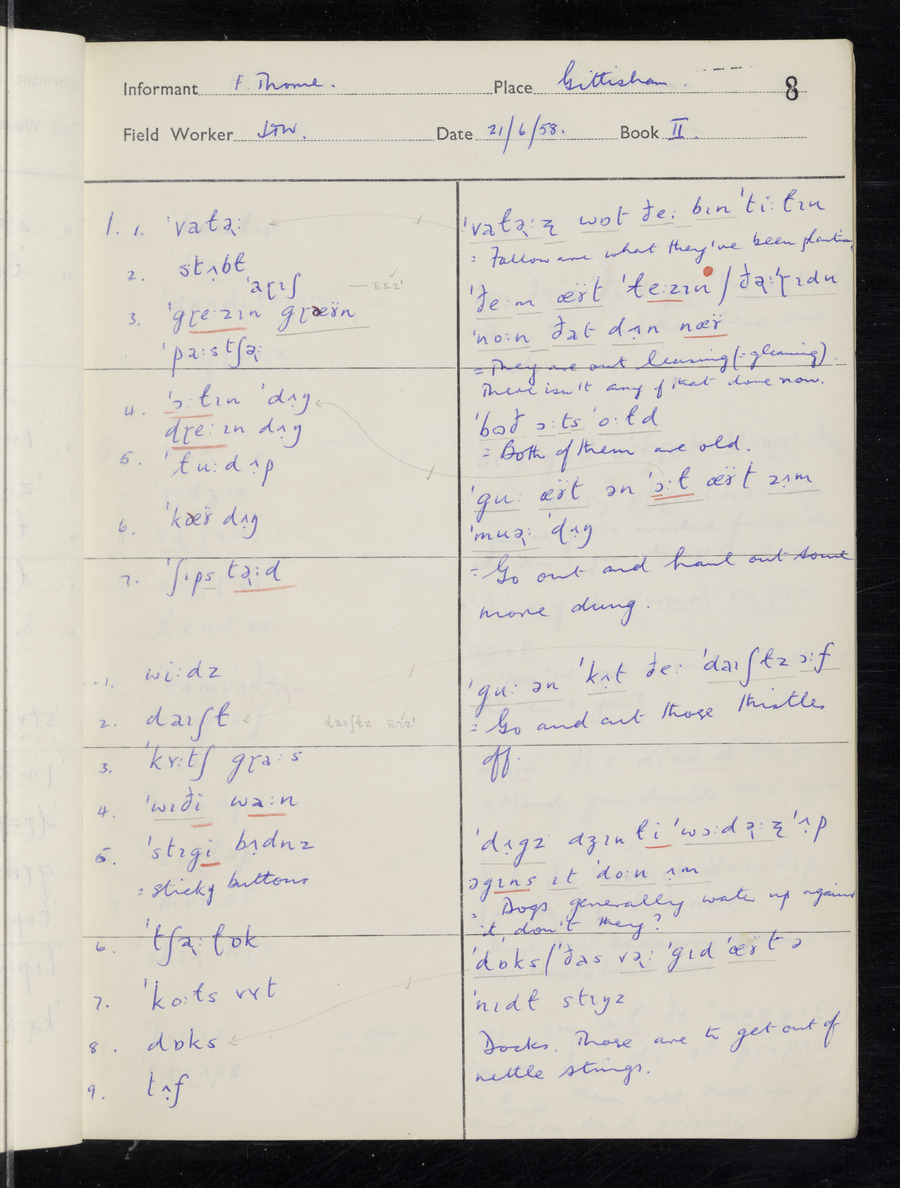 Informant F. Thorne. Place Gittisham. 8
Field Worker JTW. Date 21/6/58. Book II.
1. 1. ˈvatə̣:
2. stʌ̣bt
ˈəɽɪʃ II.S.2
3. ˈgɽe:zɪn gɽæÿn
ˈpa:stʃə̣:
4. ˈɔ:tɪn ˈdʌ̣ŋ
dɽe:ɪn dʌ̣ŋ
5. ˈtu:dʌ̣p
6. ˈkæÿ dʌ̣ŋ
7. ˈʃɪps tə̣:d
1. wi:dz
2. daɪʃt daɪʃtz II.2.2
3. ˈkɤ:tʃ gɽa:s
4. ˈwɪði wə:n
5. ˈstɪgi bʌ̣dnz
= sticky buttons
6. ˈtʃə̣:ɫɒk
7. ˈko:ts vʏt
8. dɒks
9. tʌ̣f
ˈvatə̣:ʐ wɒt ðe: bɪn ˈti:tɪn
= Fallow are what they've been planting
ˈðe:m æÿt ˈte:zɪn / ðə̣:ˈɽɪdn
ˈno:n ðat dʌ̣n næÿ
= They are out leasing (= gleaning).
There isn't any of that done now.
ˈbɔð ɔ:ts ˈo:td
= Both of them are old.
ˈgu: æÿt ən ˈɔ:t æÿt zʌ̣m
ˈmuə̣: ˈdʌ̣ŋ
= Go out and haul out some
more dung.
ˈgu: ən ˈkʌ̣t ðe: ˈdaɪʃtz ɔ:f
= Go and cut those thistles
off.
ˈdʌ̣gz dʒɪnti ˈwɔ:də̣:ʐ ˈʌ̣p
əgɪns ɪt ˈdo:n ʌ̣m
= Dogs generally water up against
it, don't they?
ˈdɒks / ˈðas və̣: ˈgɪd ˈæÿt ə
ˈnɪdt stɪŋz
Docks. Those are to get out of
nettle stings.